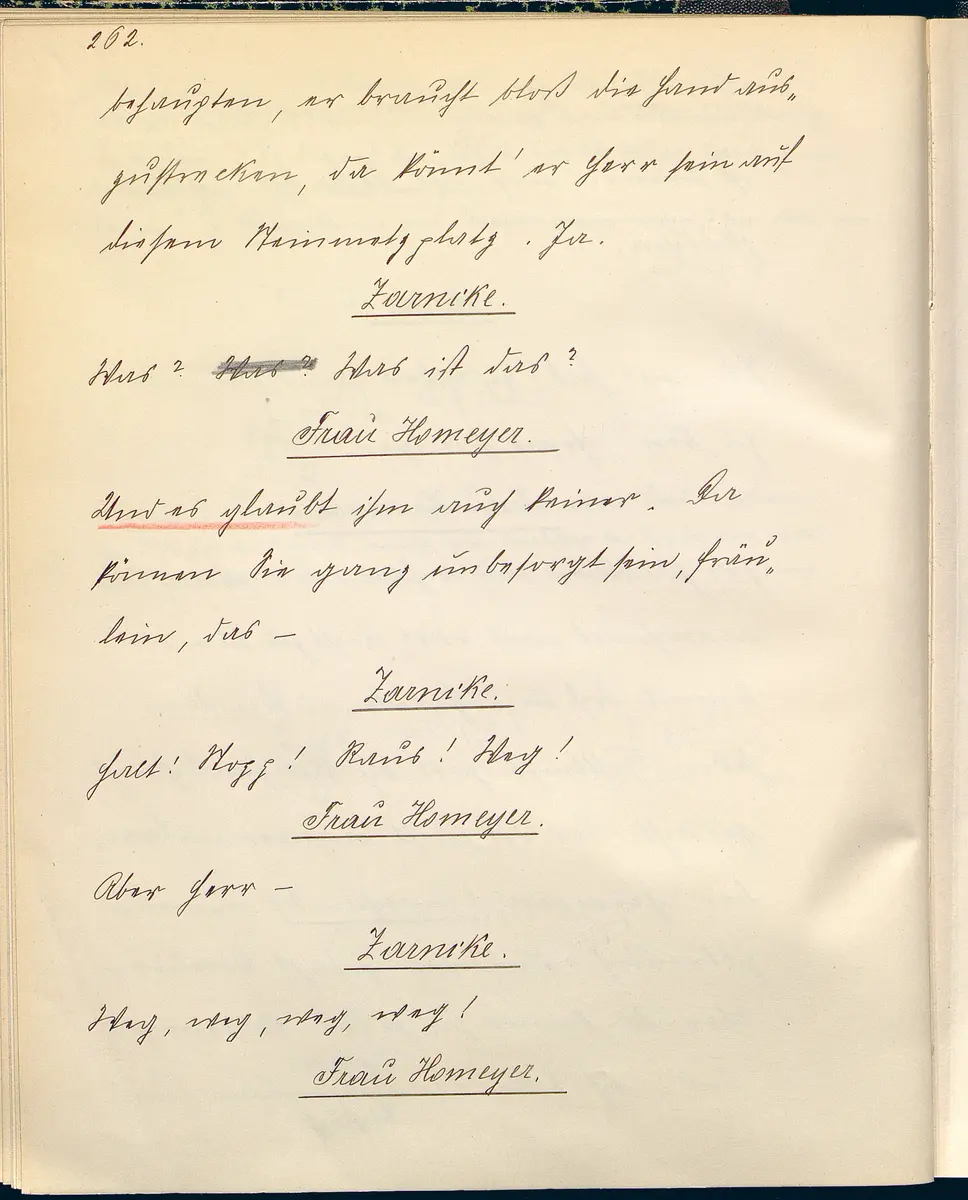 262.
behaupten, er braucht bloß die Hand aus-
zustrecken, da könnt' er Herr sein auf
diesem Steinmetzplatz. Ja.
Zarnike.
Was? Was? Was ist das?
Frau Homeyer.
Und es glaubt ihm auch keiner. Da
können Sie ganz unbesorgt sein, Fräu-
lein, das –
Zarnike.
Halt! Stopp! Raus! Weg!
Frau Homeyer.
Aber Herr –
Zarnike.
Weg, weg, weg, weg!
Frau Homeyer.